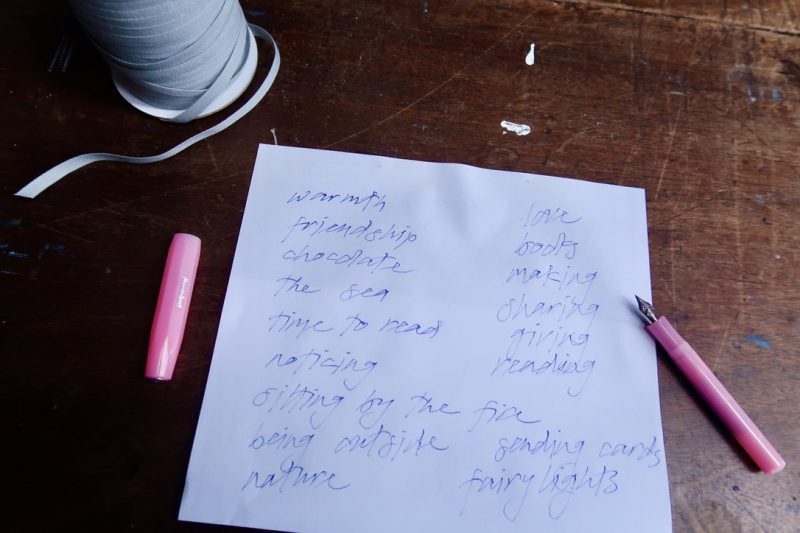 warmth
friendship
chocolate
the sea
time to read
noticing
sitting by the fire
being outside
nature
love
books
making
sharing
giving
reading
sending cards
fairy lights